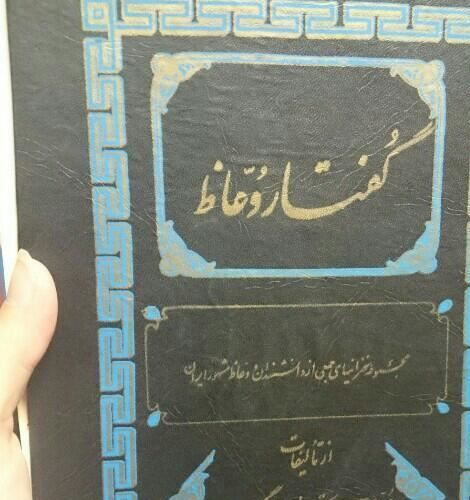 گفتار وُعّاظ
مجموعه سخنرانیهای جمعی از دانشمندان و عاظ مشهور ایران
از تألیفات